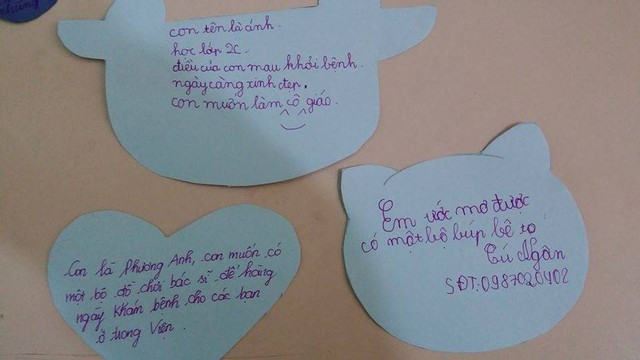 con tên là ánh.
học lớp 2C.
điều của con mau khỏi bệnh.
ngày càng xinh đẹp.
con muốn làm cô giáo.
Em ước mơ được
có một bộ búp bê to
Tú Ngân
SĐT: 0987020402
Con là Phương Anh, con muốn có
một bộ đồ chơi bác sĩ để hàng
ngày khám bệnh cho các bạn
ở trong Viện.